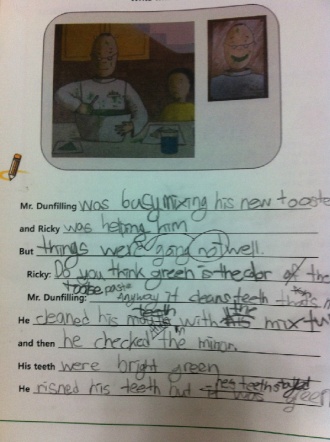 Mr. Dunfilling was busy mixing his new tooste
and Ricky was helping him
But things were going not well.
Ricky: Do you think green is the color of the
toose paste
Mr. Dunfilling: Anyway it cleans teeth that's
teeth
He cleaned his with mixtu
and then he checked the mirror.
His teeth were bright green
He risned his teeth but his teeth stayed
it was green